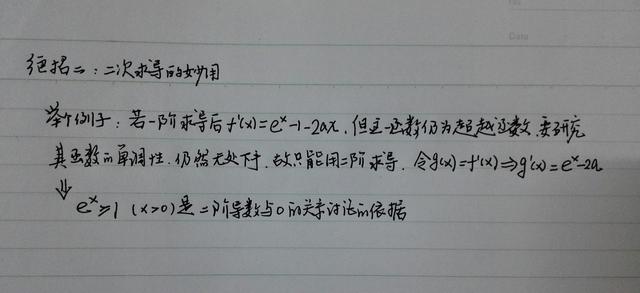 绝招二：二次求导的妙用
举个例子：若一阶求导后f'(x)=e^x-1-2ax，但这一函数仍为超越函数，要研究
其函数的单调性，仍然无处下手，故只能用二阶求导，令g(x)=f'(x)⇒g'(x)=e^x-2a
⇓
e^x≥1 (x>0)是二阶导数与0的关系讨论的依据